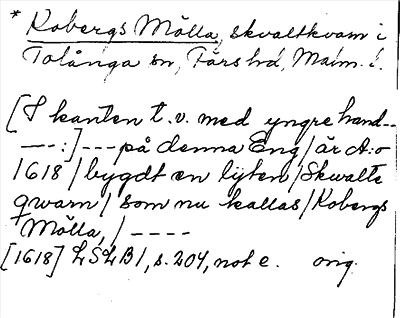 * Kobergs Mölla, skvaltkvarn i
Tolånga sn, Färs hd, Malm. l.
[I kanten t.v. med yngre hand--
---:] --- på denna Eng / är A:o
1618 / bygdt en lijten / Skwalte
qwarn / som nu kallas / Kobergs
Mölla, / ----
[1618] LSLB 1, s. 204, not e. orig.